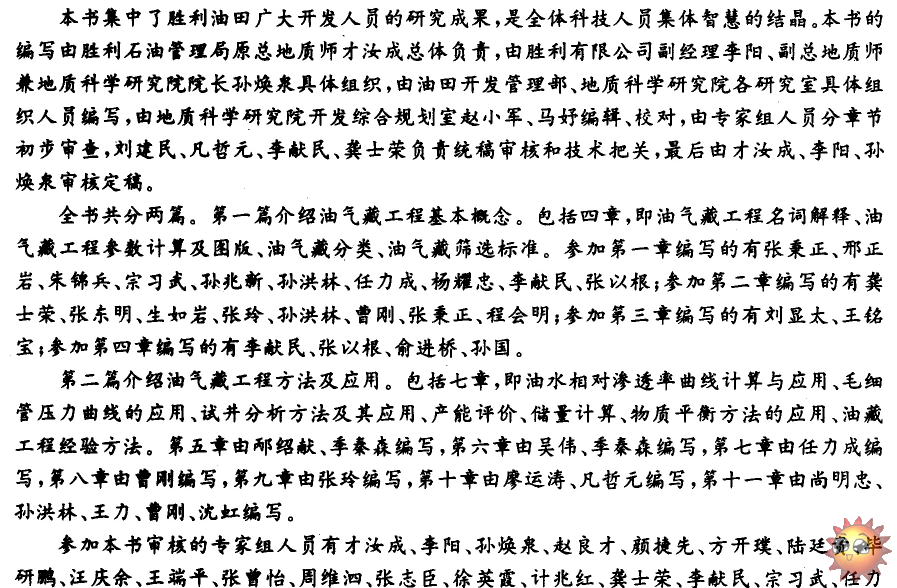 本书集中了胜利油田广大开发人员的研究成果,是全体科技人员集体智慧的结晶。本书的
编写由胜利石油管理局原总地质师才汝成总体负责,由胜利有限公司副经理李阳、副总地质师
兼地质科学研究院院长孙焕泉具体组织,由油田开发管理部、地质科学研究院各研究室具体组
织人员编写,由地质科学研究院开发综合规划室赵小军、马妤编辑、校对,由专家组人员分章节
初步审查,刘建民、凡哲元、李献民、龚士荣负责统稿审核和技术把关,最后由才汝成、李阳、孙
焕泉审核定稿。
全书共分两篇。第一篇介绍油气藏工程基本概念。包括四章,即油气藏工程名词解释、油
气藏工程参数计算及图版、油气藏分类、油气藏筛选标准。参加第一章编写的有张秉正、邢正
岩、朱锦兵、宗习武、孙兆新、孙洪林、任力成、杨耀忠、李献民、张以根;参加第二章编写的有龚
士荣、张东明、生如岩、张玲、孙洪林、曹刚、张秉正、程会明;参加第三章编写的有刘显太、王铭
宝;参加第四章编写的有李献民、张以根、俞进桥、孙国。
第二篇介绍油气藏工程方法及应用。包括七章,即油水相对渗透率曲线计算与应用、毛细
管压力曲线的应用、试井分析方法及其应用、产能评价、储量计算、物质平衡方法的应用、油藏
工程经验方法。第五章由邴绍献、季秦森编写,第六章由吴伟、季秦森编写,第七章由任力成编
写,第八章由曹刚编写,第九章由张玲编写,第十章由廖运涛、凡哲元编写,第十一章由尚明忠、
孙洪林、王力、曹刚、沈虹编写。
参加本书审核的专家组人员有才汝成、李阳、孙焕泉、赵良才、颜捷先、方开璞、陆廷 、毕
研鹏、汪庆余、王端平、张曾怡、周维泗、张志臣、徐英霞、计兆红、龚士荣、李献民、宗习武、任力